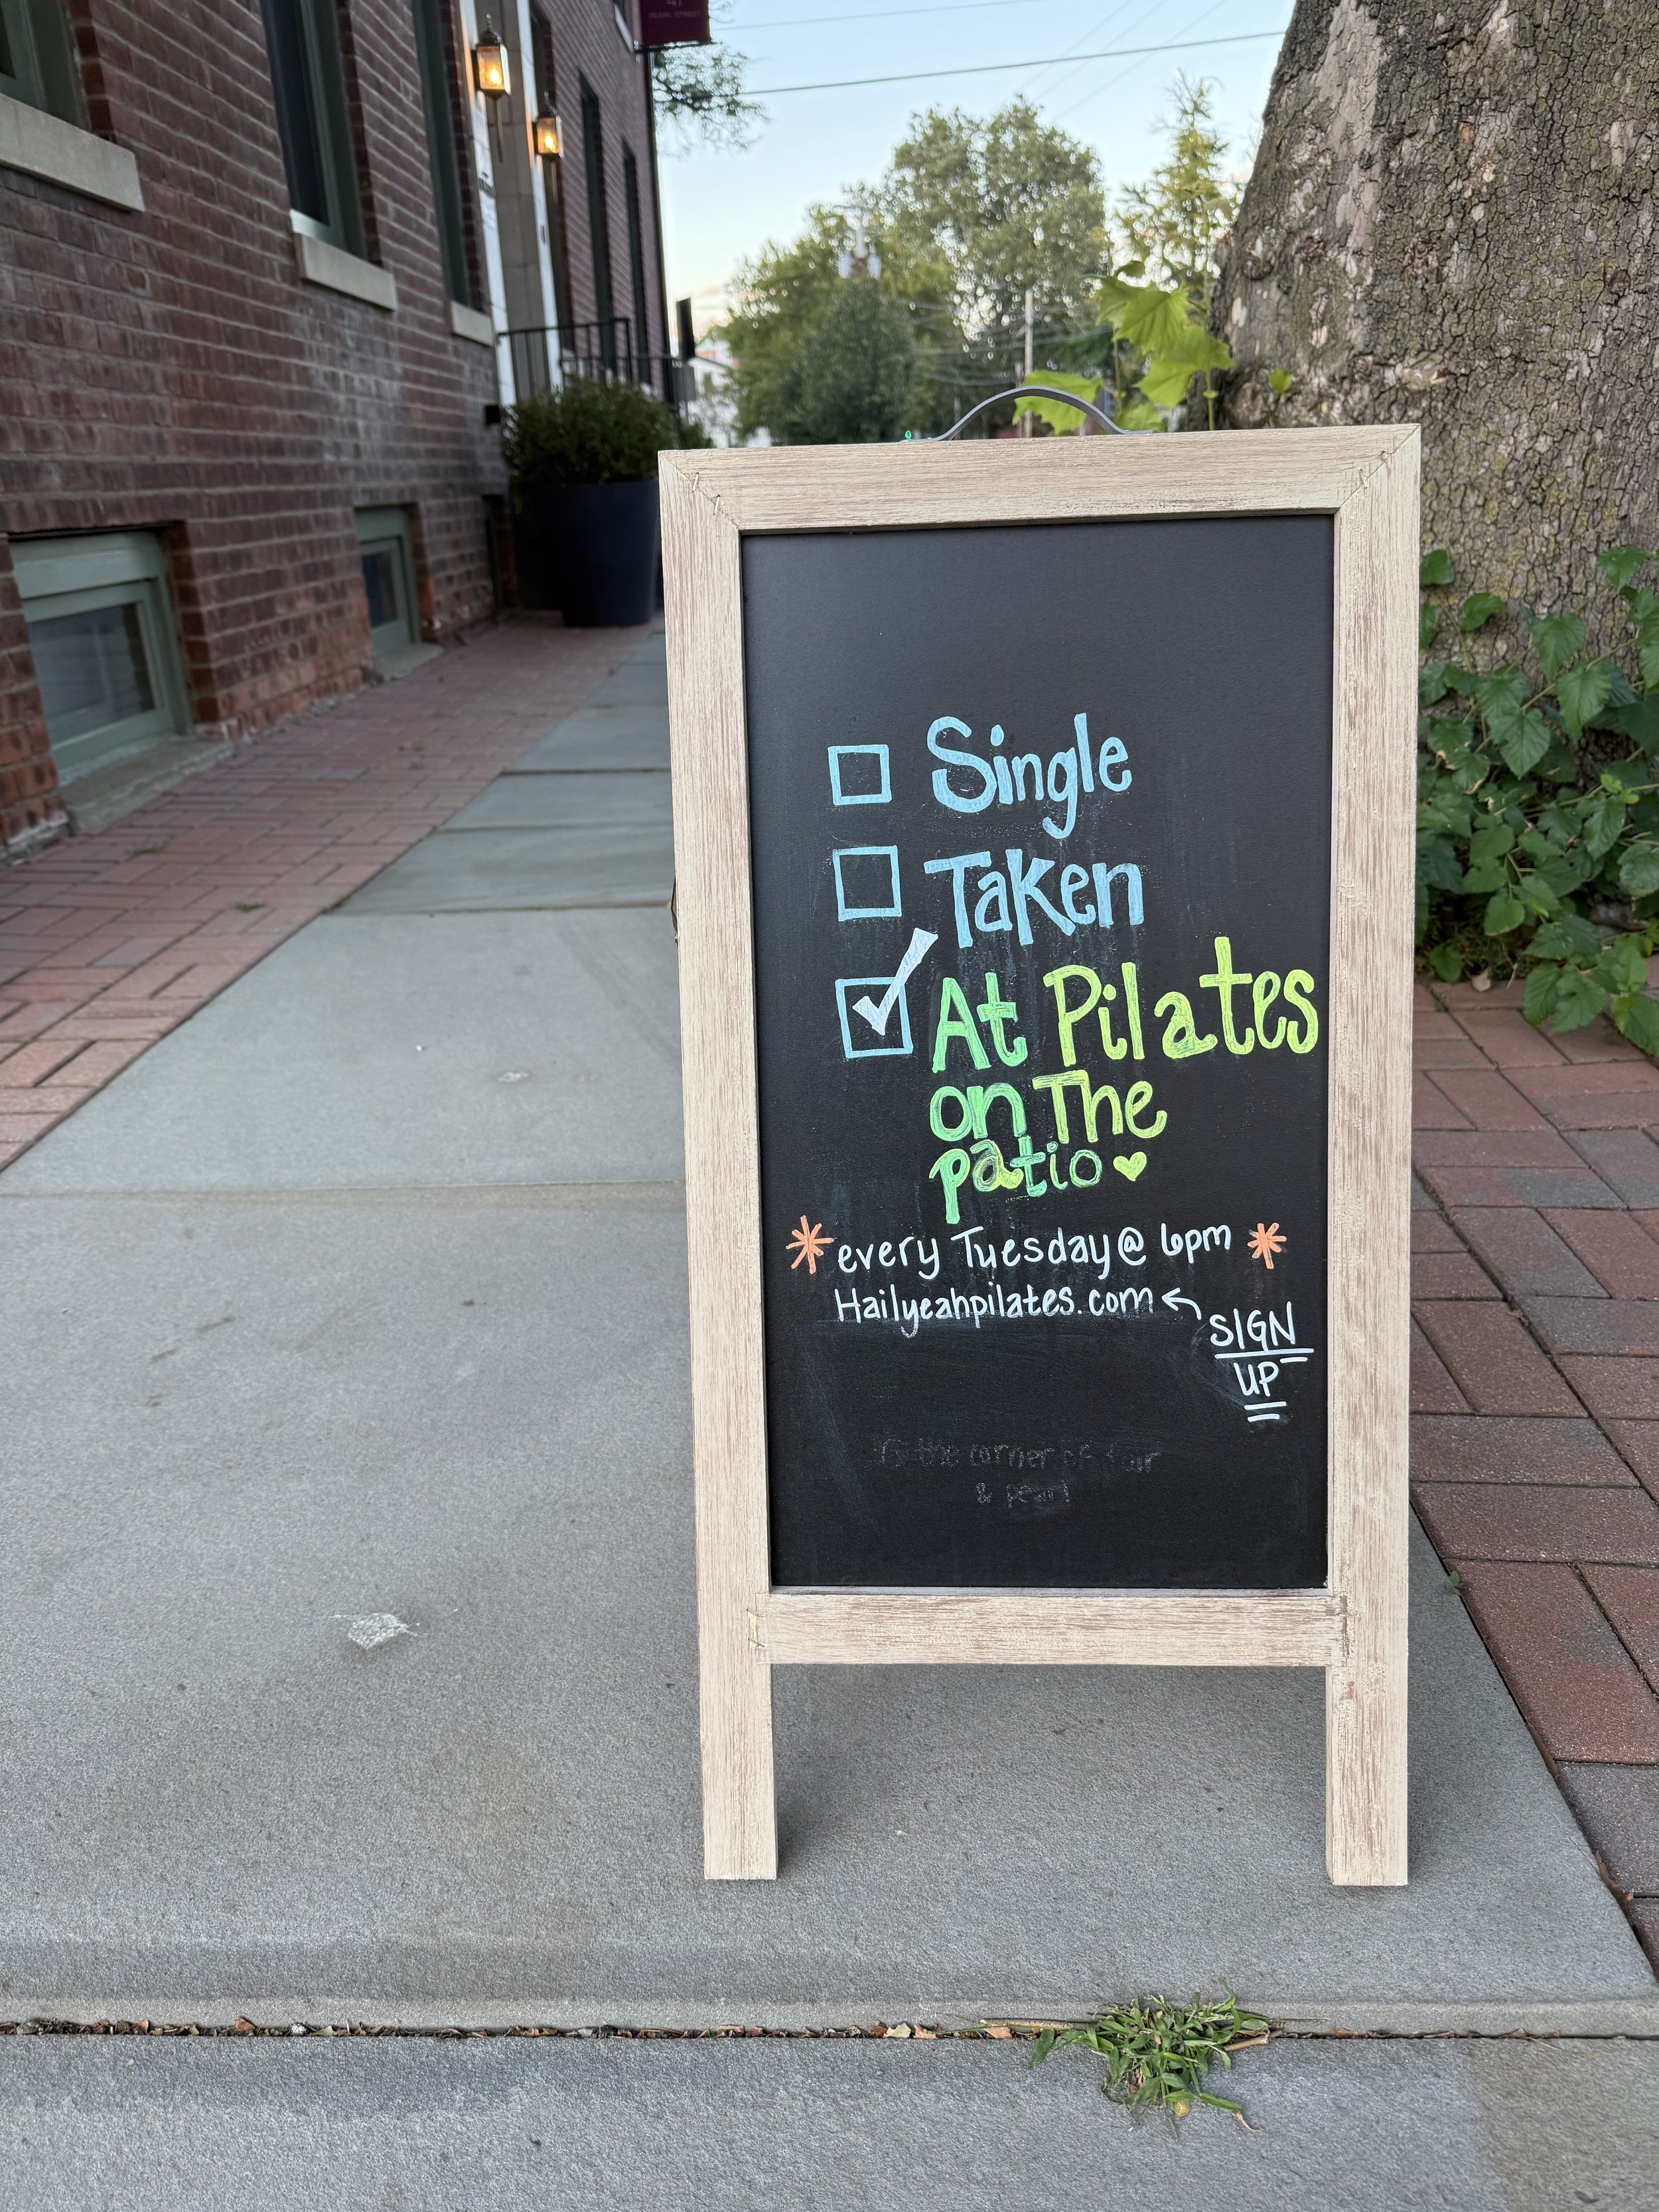 41
PEARL STREET
Single
Taken
At Pilates
on The
patio
every Tuesday @ 6pm
Hailyeahpilates.com
SIGN
UP
the corner of
& pearl